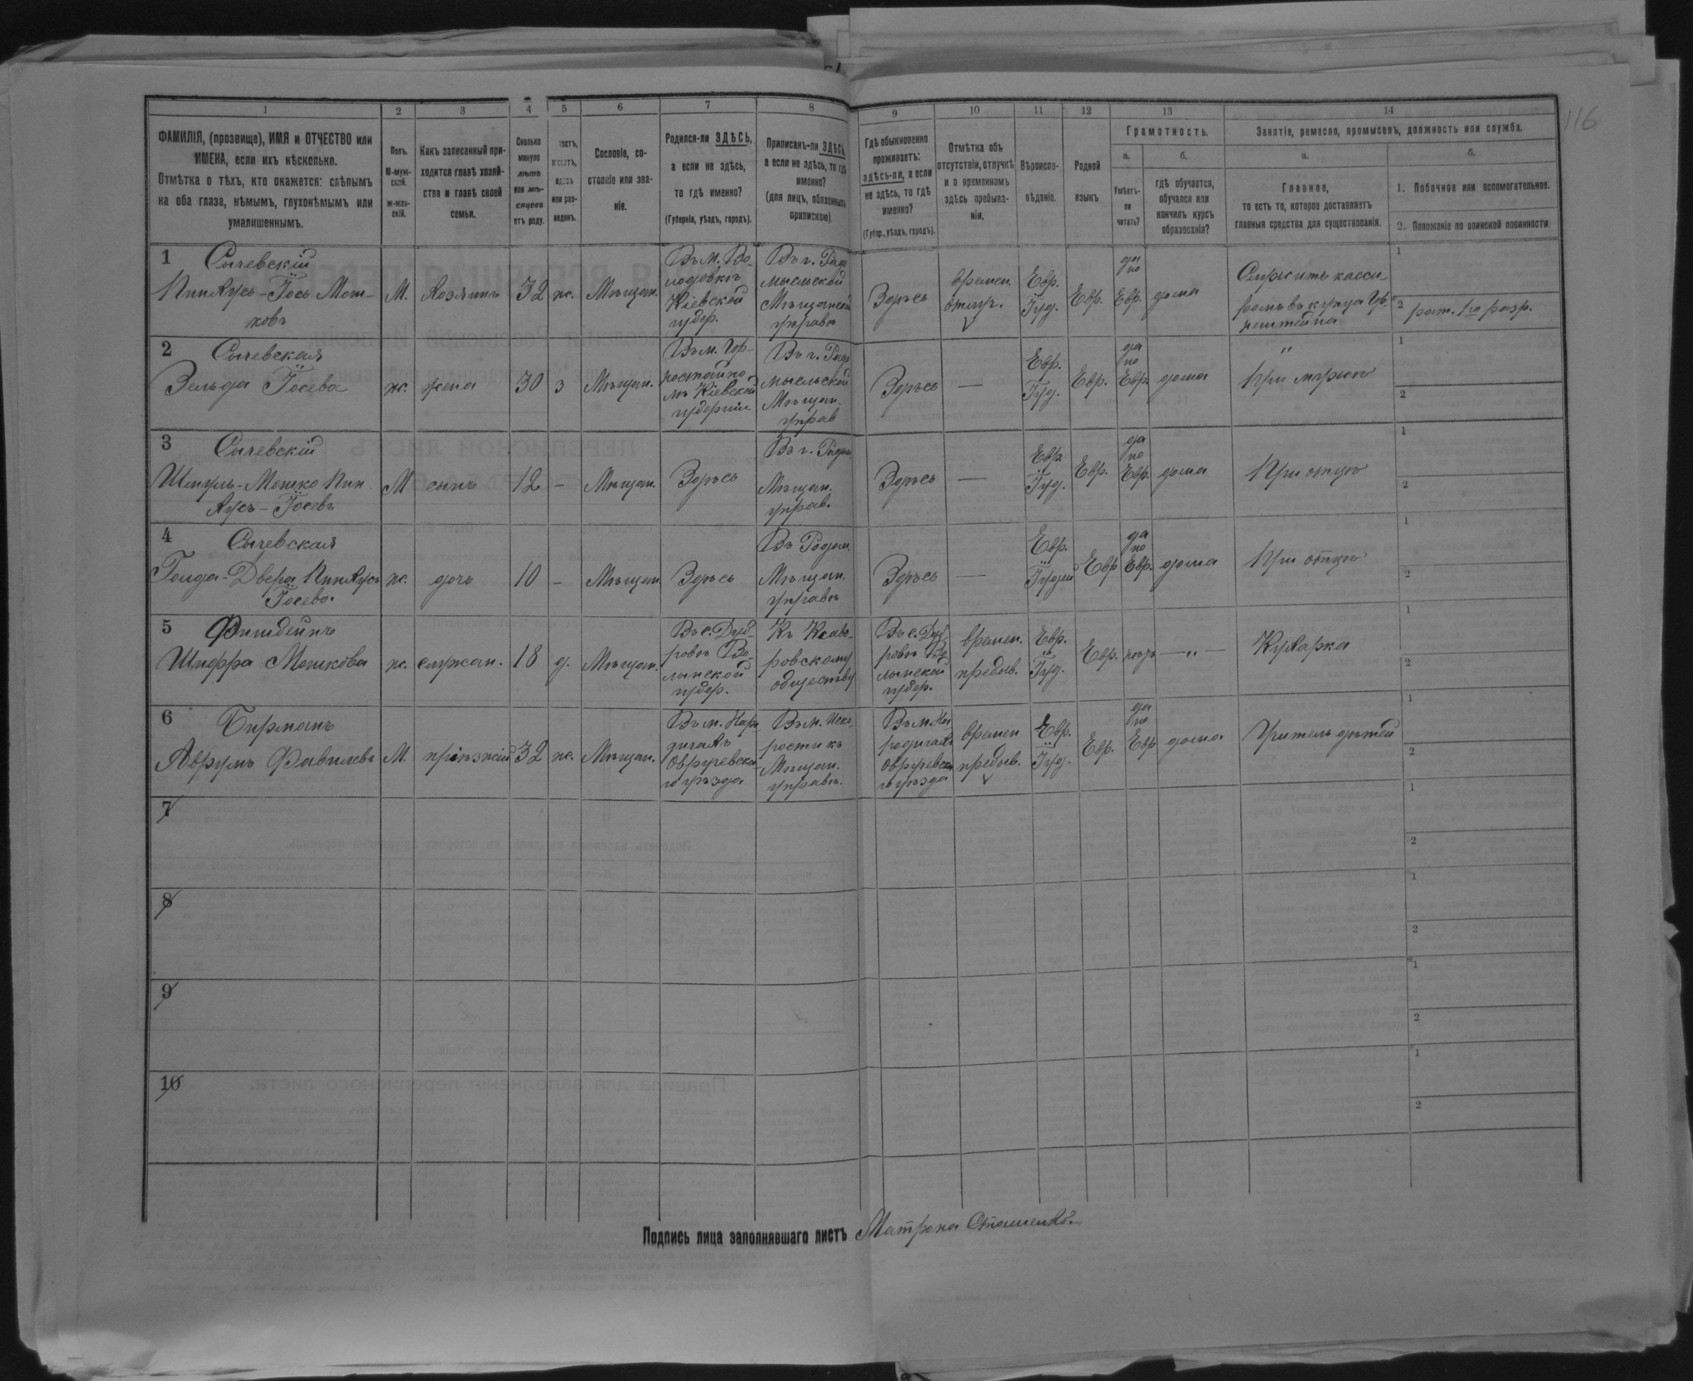 116
1 2 3 4 5 6 7 8 9 10 11 12 13 14
ФАМИЛІЯ, (прозвище), ИМЯ и ОТЧЕСТВО или
ИМЕНА, если ихъ нѣсколько.
Отмѣтка о тѣхъ, кто окажется: слѣпымъ
на оба глаза, нѣмымъ, глухонѣмымъ или
умалишеннымъ.
Полъ.
М-муж-
ской.
ж-жен-
скій.
Какъ записанный при-
ходится главѣ хозяй-
ства и главѣ своей
семьи.
Сколько
минуло
лѣтъ
или мѣ-
сяцевъ
отъ роду.
или раз-
веденъ.
Сословіе, со-
стояніе или зва-
ніе.
Родился-ли ЗДѢСЬ,
а если не здѣсь,
то гдѣ именно?
(Губернія, уѣздъ, городъ).
Приписанъ-ли ЗДѢСЬ,
а если не здѣсь, то гдѣ
именно?
(для лицъ, обязанныхъ
припискою).
Гдѣ обыкновенно
проживаетъ:
здѣсь-ли, а если
не здѣсь, то гдѣ
именно?
(Губер., уѣздъ, городъ).
Отмѣтка объ
отсутствіи, отлучкѣ
и о временномъ
здѣсь пребыва-
ніи.
Вѣроиспо-
вѣданіе.
Родной
языкъ.
Грамотность.
а.
Умѣетъ-
ли
читать?
б.
гдѣ обучается,
обучался или
кончилъ курсъ
образованія?
Занятіе, ремесло, промыселъ, должность или служба.
а.
Главное,
то есть то, которое доставляетъ
главныя средства для существованія.
б.
1. Побочное или вспомогательное.
2. Положеніе по воинской повинности
1 Сычевскій
Пинхусъ-Іось Мош-
ковъ
М. хозяинъ 32 ж. Мѣщан.
Въ м. Во-
лодовкѣ
Кіевской
губер.
Въ г. Радо
мысльской
Мѣщанской
управѣ
Здѣсь
времен.
отлуч.
Евр.
Іуд.
Евр.
да
по
Евр.
дома
Служитъ касси
ромъ въ купца
1
2 рат. 1го разр.
2 Сычевская
Зельда Іосева
ж. жена 30 з Мѣщан.
Въ м. Гор-
ностайпо
лѣ Кіевской
губерніи
Въ г. Радо
мысльской
Мѣщан.
управ
Здѣсь —
Евр.
Іуд.
Евр.
да
по
Евр.
дома
"
При мужѣ
1
2
3 Сычевскій
Шмуль-Мошко Пин
хусъ-Іосевъ
М сынъ 12 - Мѣщан. Здѣсь
Въ г. Радом
Мѣщан.
управ.
Здѣсь —
Евр
Іуд.
Евр.
да
по
Евр.
дома
При отцѣ
1
2
4 Сычевская
Голда-Двера Пинхусъ
Іосева.
ж. дочь 10 - Мѣщан. Здѣсь
Въ Радом
Мѣщан.
управѣ
Здѣсь —
Евр.
Іудей
Евр
да
по
Евр.
дома
При отцѣ
1
2
5 Финдейнъ
Шифра Мошкова
ж. служан. 18 д. Мѣщан.
Въ с. Дуб-
ровѣ Во-
лынской
губер.
Къ
ровскому
обществу
Въ с. Дуб
ровѣ Во
лынской
губер.
времен.
пребыв.
Евр.
Іуд.
Евр. нѣтъ — " —
Кухарка
1
2
6 Бирманъ
Аврумъ Фавилевъ
М. пріѣзжій 32 ж. Мѣщан.
Въ м. Наро
дичахъ
Овручевска
го уѣзда
Въ м. Иска
ростикѣ
Мѣщан.
управѣ.
Въ м. На
родичахъ
Овручевска
го уѣзда
времен
пребыв.
Евр.
Іуд.
Евр.
да
по
Евр
дома
Учитель дѣтей
1
2
7
1
2
8
1
2
9
1
2
10
1
2
Подпись лица заполнявшаго листъ Матрона